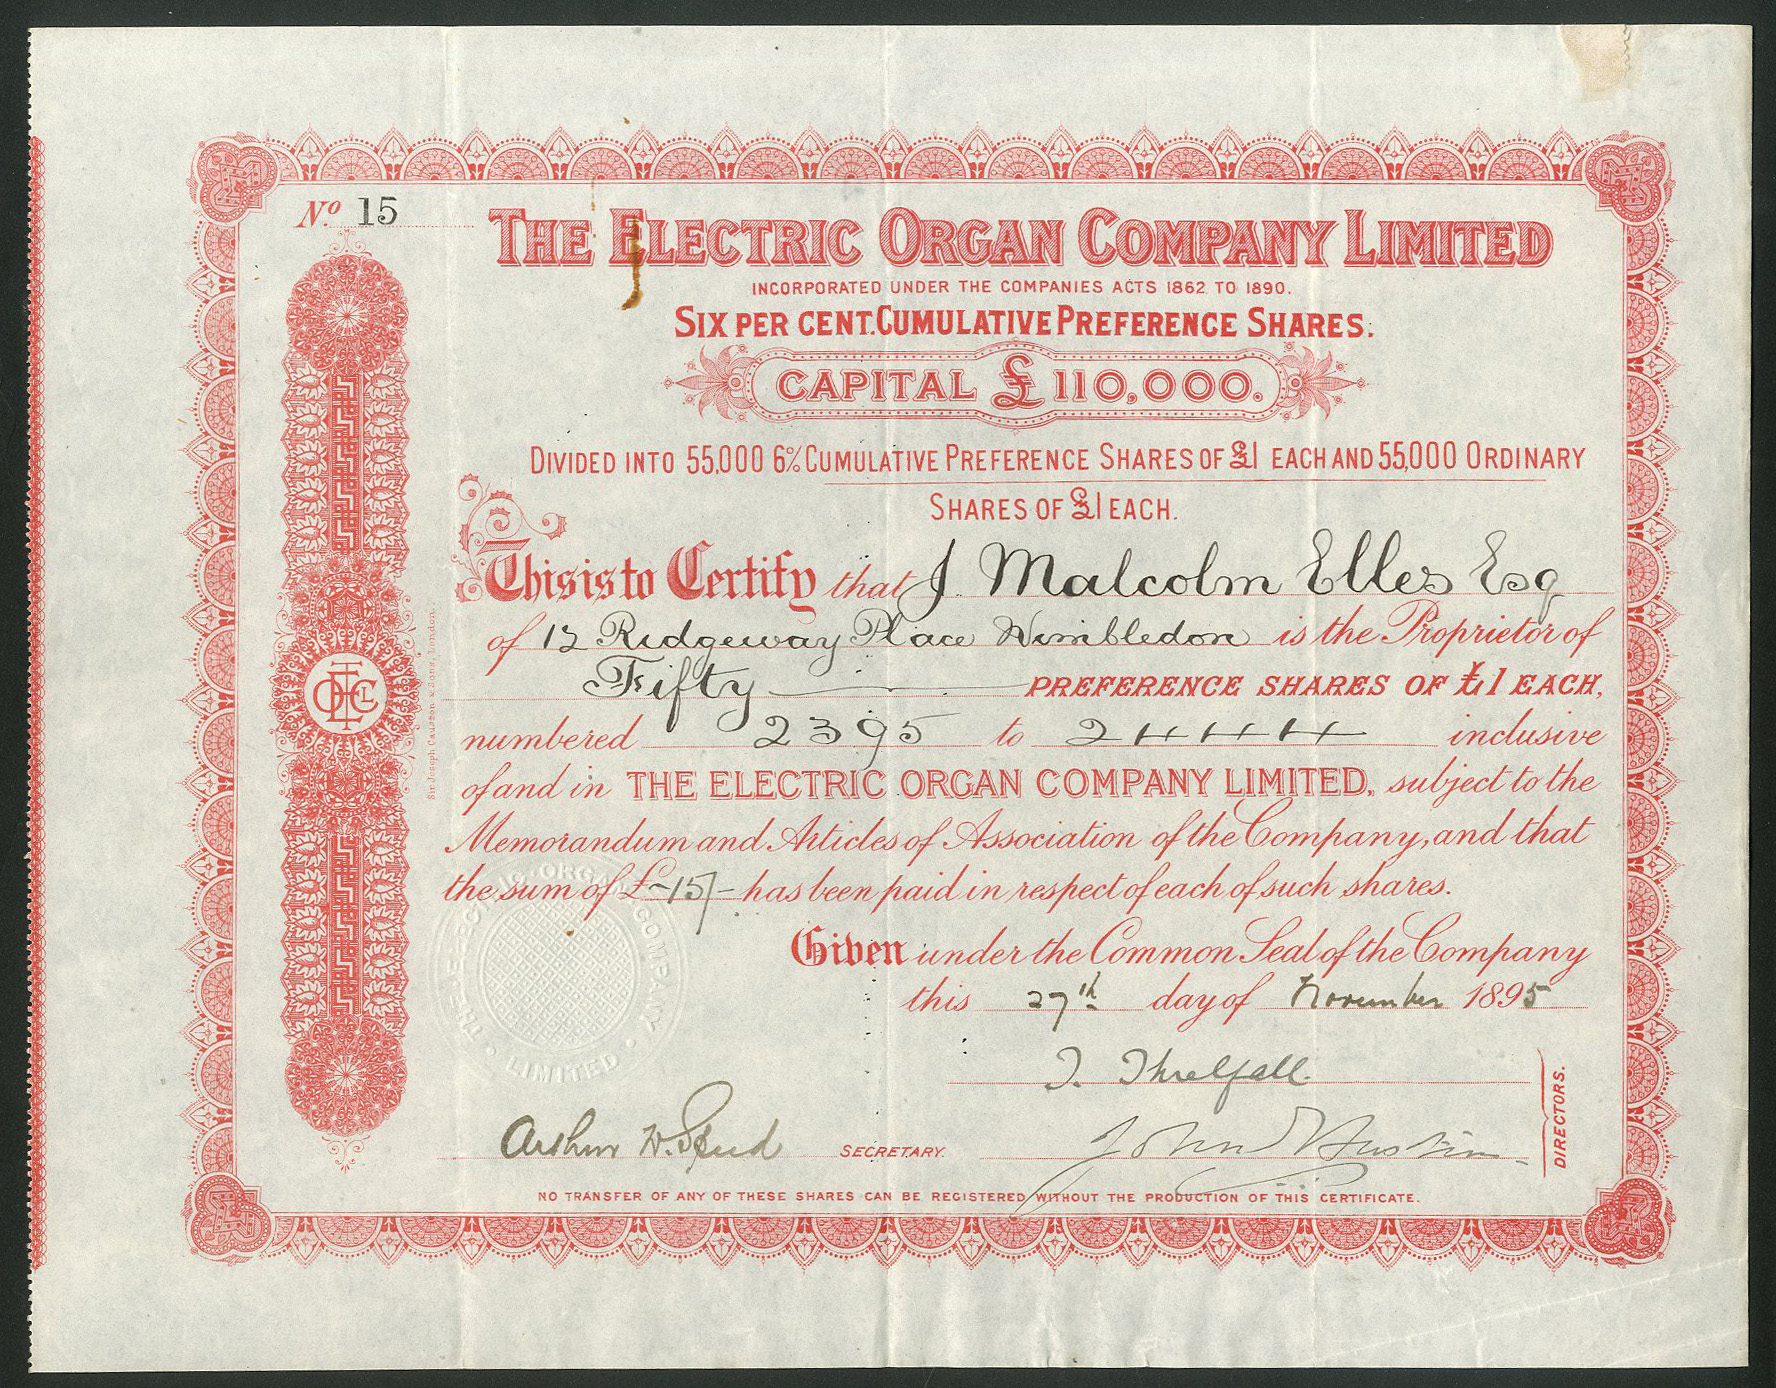 No. 15
THE ELECTRIC ORGAN COMPANY LIMITED
INCORPORATED UNDER THE COMPANIES ACTS 1862 TO 1890.
SIX PER CENT. CUMULATIVE PREFERENCE SHARES.
CAPITAL £110,000.
DIVIDED INTO 55,000 6% CUMULATIVE PREFERENCE SHARES OF £1 EACH AND 55,000 ORDINARY
SHARES OF £1 EACH.
This is to Certify that J. Malcolm Elles Esq
of 12 Ridgeway Place Wimbledon is the Proprietor of
Fifty PREFERENCE SHARES OF £1 EACH,
numbered 2395 to 2444 inclusive
of and in THE ELECTRIC ORGAN COMPANY LIMITED, subject to the
Memorandum and Articles of Association of the Company, and that
the sum of £-15/- has been paid in respect of each of such shares.
Given under the Common Seal of the Company
this 27th day of November 1895
T. Threlfall
Arthur W. SECRETARY. John Austin
DIRECTORS.
NO TRANSFER OF ANY OF THESE SHARES CAN BE REGISTERED WITHOUT THE PRODUCTION OF THIS CERTIFICATE.
Sir Joseph Causton & Sons, London.
THE ELECTRIC ORGAN COMPANY LIMITED